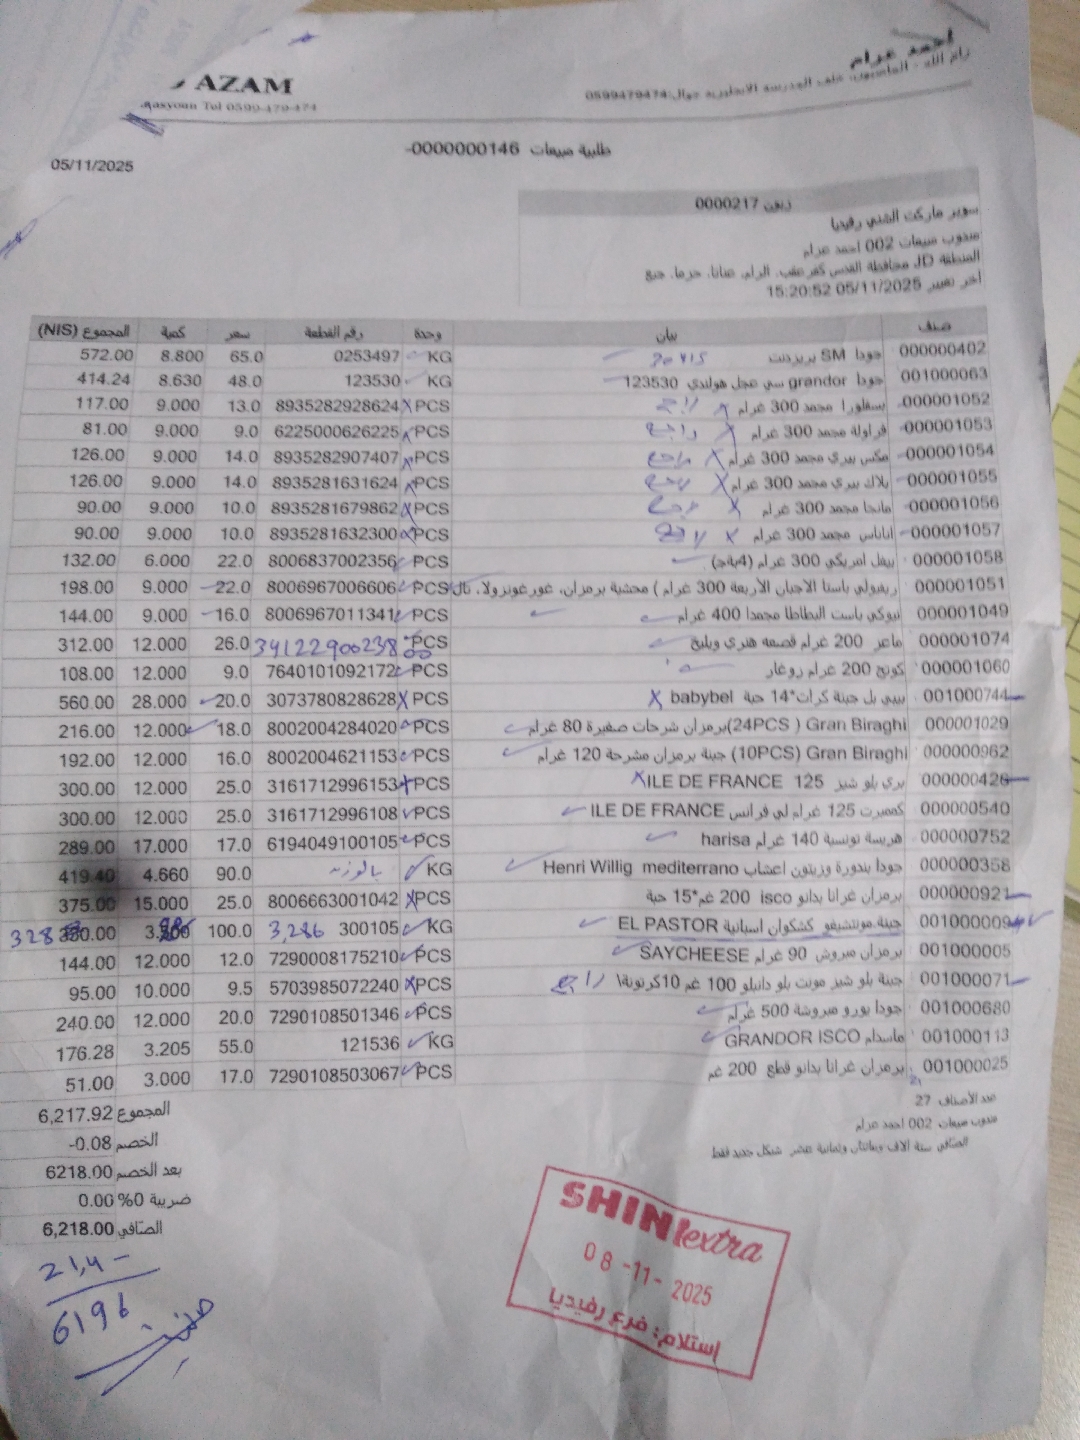 AZAM
Masyoun Tel 0599-479-474
احمد عزام
رام الله - الماصيون، خلف المدرسة الانجليزية جوال:0599479474
05/11/2025
طلبية مبيعات 0000000146-
زبون 0000217
سوبر ماركت الشني رفيديا
مندوب مبيعات 002 احمد عزام
المنطقة JD محافظة القدس كفر عقب، الرام، عناتا، حزما، جبع
آخر تغيير 05/11/2025 15:20:52
صنف بيان وحدة رقم القطعة سعر كمية المجموع (NIS)
000000402 جودا SM بريزدنت KG 0253497 65.0 8.800 572.00
001000063 جودا grandor سي عجل هولندي 123530 KG 123530 48.0 8.630 414.24
000001052 بسفلورا مجمد 300 غرام X راجع X PCS 8935282928624 13.0 9.000 117.00
000001053 فراولة مجمد 300 غرام X راجع X PCS 6225000626225 9.0 9.000 81.00
000001054 مكس بيري مجمد 300 غرام X راجع X PCS 8935282907407 14.0 9.000 126.00
000001055 بلاك بيري مجمد 300 غرام X راجع X PCS 8935281631624 14.0 9.000 126.00
000001056 مانجا مجمد 300 غرام X راجع X PCS 8935281679862 10.0 9.000 90.00
000001057 اناناس مجمد 300 غرام X راجع X PCS 8935281632300 10.0 9.000 90.00
000001058 بيغل امريكي 300 غرام (4حبة) PCS 8006837002356 22.0 6.000 132.00
000001051 ريفيولي باستا الاجبان الأربعة 300 غرام ) محشية برمزان، غورغونزولا، تال PCS 8006967006606 22.0 9.000 198.00
000001049 نيوكي باست البطاطا مجمدا 400 غرام PCS 8006967011341 16.0 9.000 144.00
000001074 ماعز 200 غرام قصمه هنري ويليج PCS 34122900238 26.0 12.000 312.00
000001060 كونج 200 غرام روغار PCS 7640101092172 9.0 12.000 108.00
001000744 بيبي بل جبنة كرات*14 حبة babybel X X PCS 3073780828628 20.0 28.000 560.00
000001029 Gran Biraghi ( 24PCS)برمزان شرحات صغيرة 80 غرام PCS 8002004284020 18.0 12.000 216.00
000000962 Gran Biraghi (10PCS) جبنة برمزان مشرحة 120 غرام PCS 8002004621153 16.0 12.000 192.00
000000426 بري بلو شيز 125 ILE DE FRANCE X X PCS 3161712996153 25.0 12.000 300.00
000000540 كممبرت 125 غرام لي فرانس ILE DE FRANCE PCS 3161712996108 25.0 12.000 300.00
000000752 هريسة تونسية 140 غرام harisa PCS 6194049100105 17.0 17.000 289.00
000000358 جودا بندورة وزيتون اعشاب Henri Willig mediterrano KG بالوزنه 90.0 4.660 419.40
000000921 برمزان غرانا بدانو isco 200 غم*15 حبة X PCS 8006663001042 25.0 15.000 375.00
001000009 جبنة مونتشيغو كشكوان اسبانية EL PASTOR KG 300105 3,286 100.0 328
001000005 برمزان مبروش 90 غرام SAYCHEESE PCS 7290008175210 12.0 12.000 144.00
001000071 جبنة بلو شيز مونت بلو دانبلو 100 غم 10كرتونة\ راجع X PCS 5703985072240 9.5 10.000 95.00
001000680 جودا يورو مبروشة 500 غرام PCS 7290108501346 20.0 12.000 240.00
001000113 ماسدام GRANDOR ISCO KG 121536 55.0 3.205 176.28
001000025 برمزان غرانا بدانو قطع 200 غم PCS 7290108503067 17.0 3.000 51.00
عدد الأصناف 27
مندوب مبيعات 002 احمد عزام
الصّافي ستة آلاف ومائتان وثمانية عشر شيكل جديد فقط
المجموع 6,217.92
الخصم 0.08-
بعد الخصم 6218.00
ضريبة 0% 0.00
الصّافي 6,218.00
21,4 -
6196
SHINI extra
08-11-2025
إستلام: فرع رفيديا